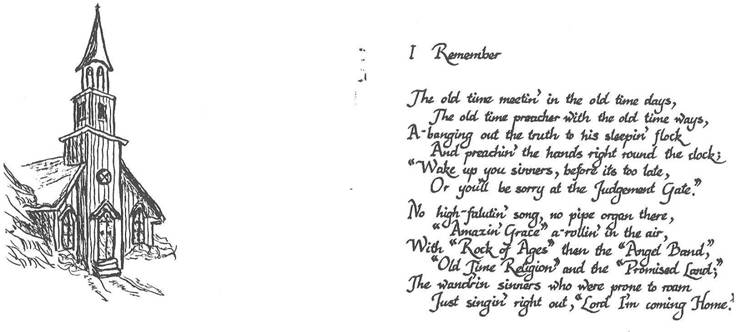 I Remember
The old time meetin' in the old time days,
The old time preacher with the old time ways,
A-banging out the truth to his sleepin' flock
And preachin' the hands right round the clock;
"Wake up you sinners, before its too late,
Or you'll be sorry at the Judgement Gate."
No high-falutin' song, no pipe organ there,
"Amazin' Grace" a-rollin' in the air,
With "Rock of Ages" then the "Angel Band,"
"Old Time Religion" and the "Promised Land;"
The wand'rin sinners who were prone to roam
Just singin' right out, "Lord I'm coming Home.'